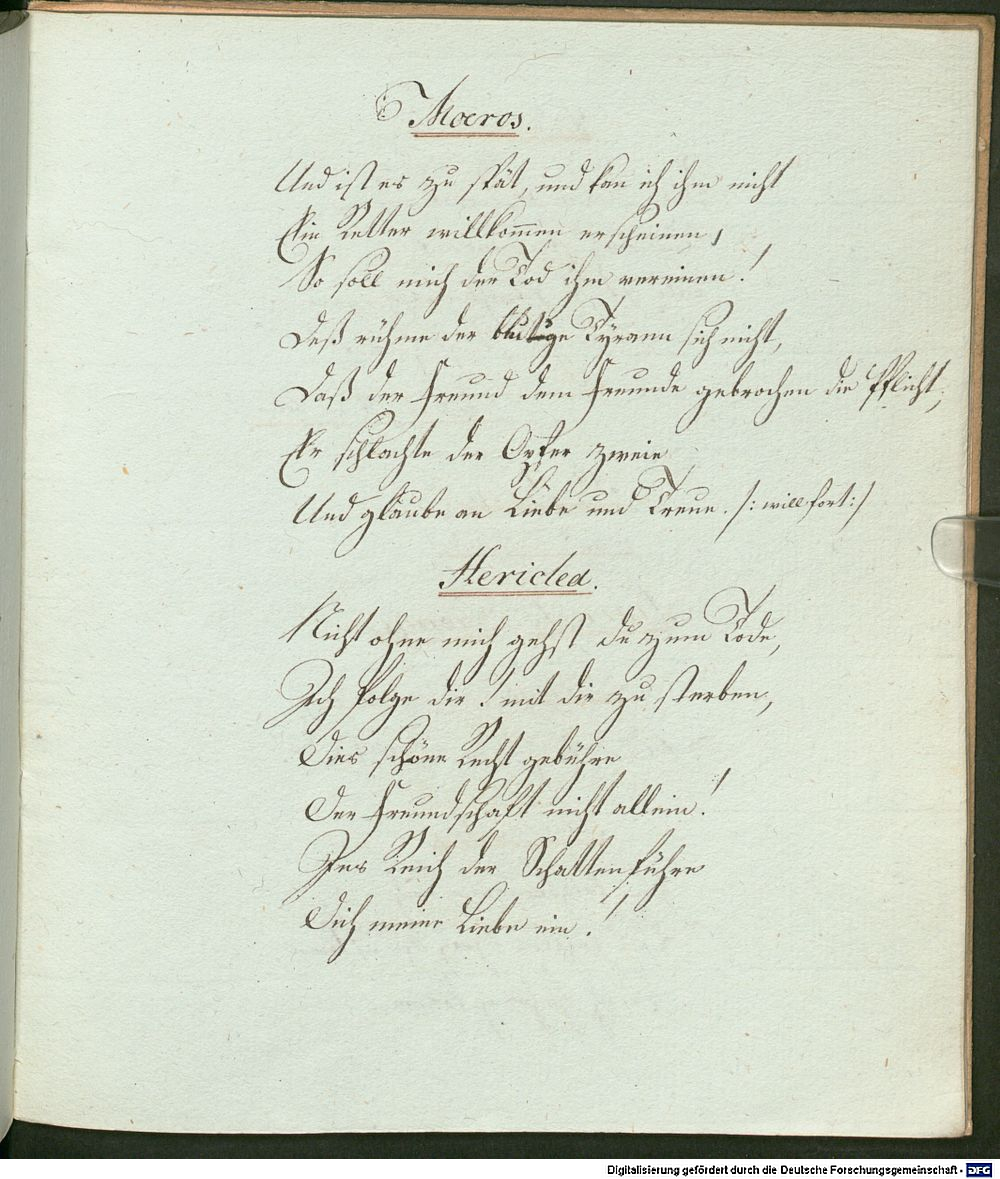 Moeros.
Und ist es zu spät, und kan̄ ich ihm nicht
Ein Retter willkom̄en erscheinen,
So soll mich der Tod ihm vereinen!
Deß rühme der blutge Tyrann sich nicht,
Daß der Freund dem Freunde gebrochen die Pflicht,
Er schlachte der Opfer zweie
Und glaube an Liebe und Treue. /: will fort :/
Hericlea.
Nicht ohne mich gehst du zum Tode,
Ich folge dir! mit dir zu sterben,
Dies schöne Recht gebühre
Der Freundschaft nicht allein!
Ins Reich der Schatten führe
Dich meine Liebe ein!
Digitalisierung gefördert durch die Deutsche Forschungsgemeinschaft - DFG